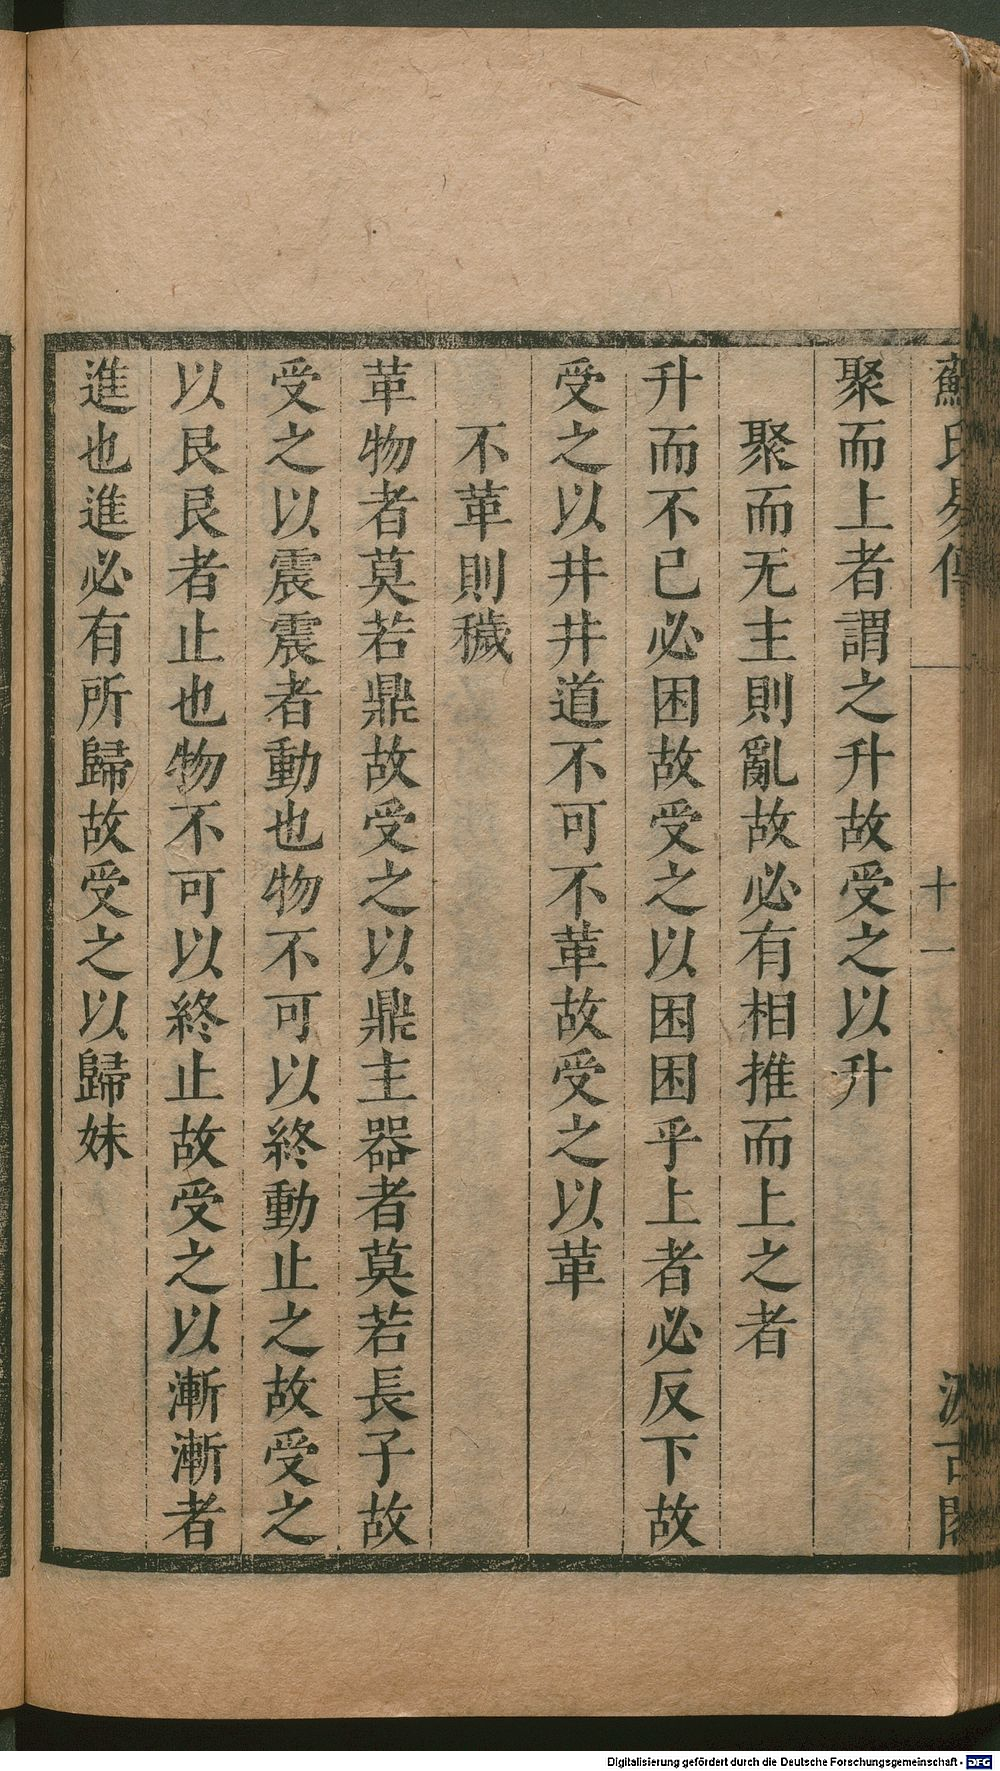 蘇氏易傳 十一 汲古閣
聚而上者謂之升故受之以升
聚而无主則亂故必有相推而上之者
升而不已必困故受之以困困乎上者必反下故
受之以井井道不可不革故受之以革
不革則穢
革物者莫若鼎故受之以鼎主器者莫若長子故
受之以震震者動也物不可以終動止之故受之
以艮艮者止也物不可以終止故受之以漸漸者
進也進必有所歸故受之以歸妹
Digitalisierung gefördert durch die Deutsche Forschungsgemeinschaft - DFG